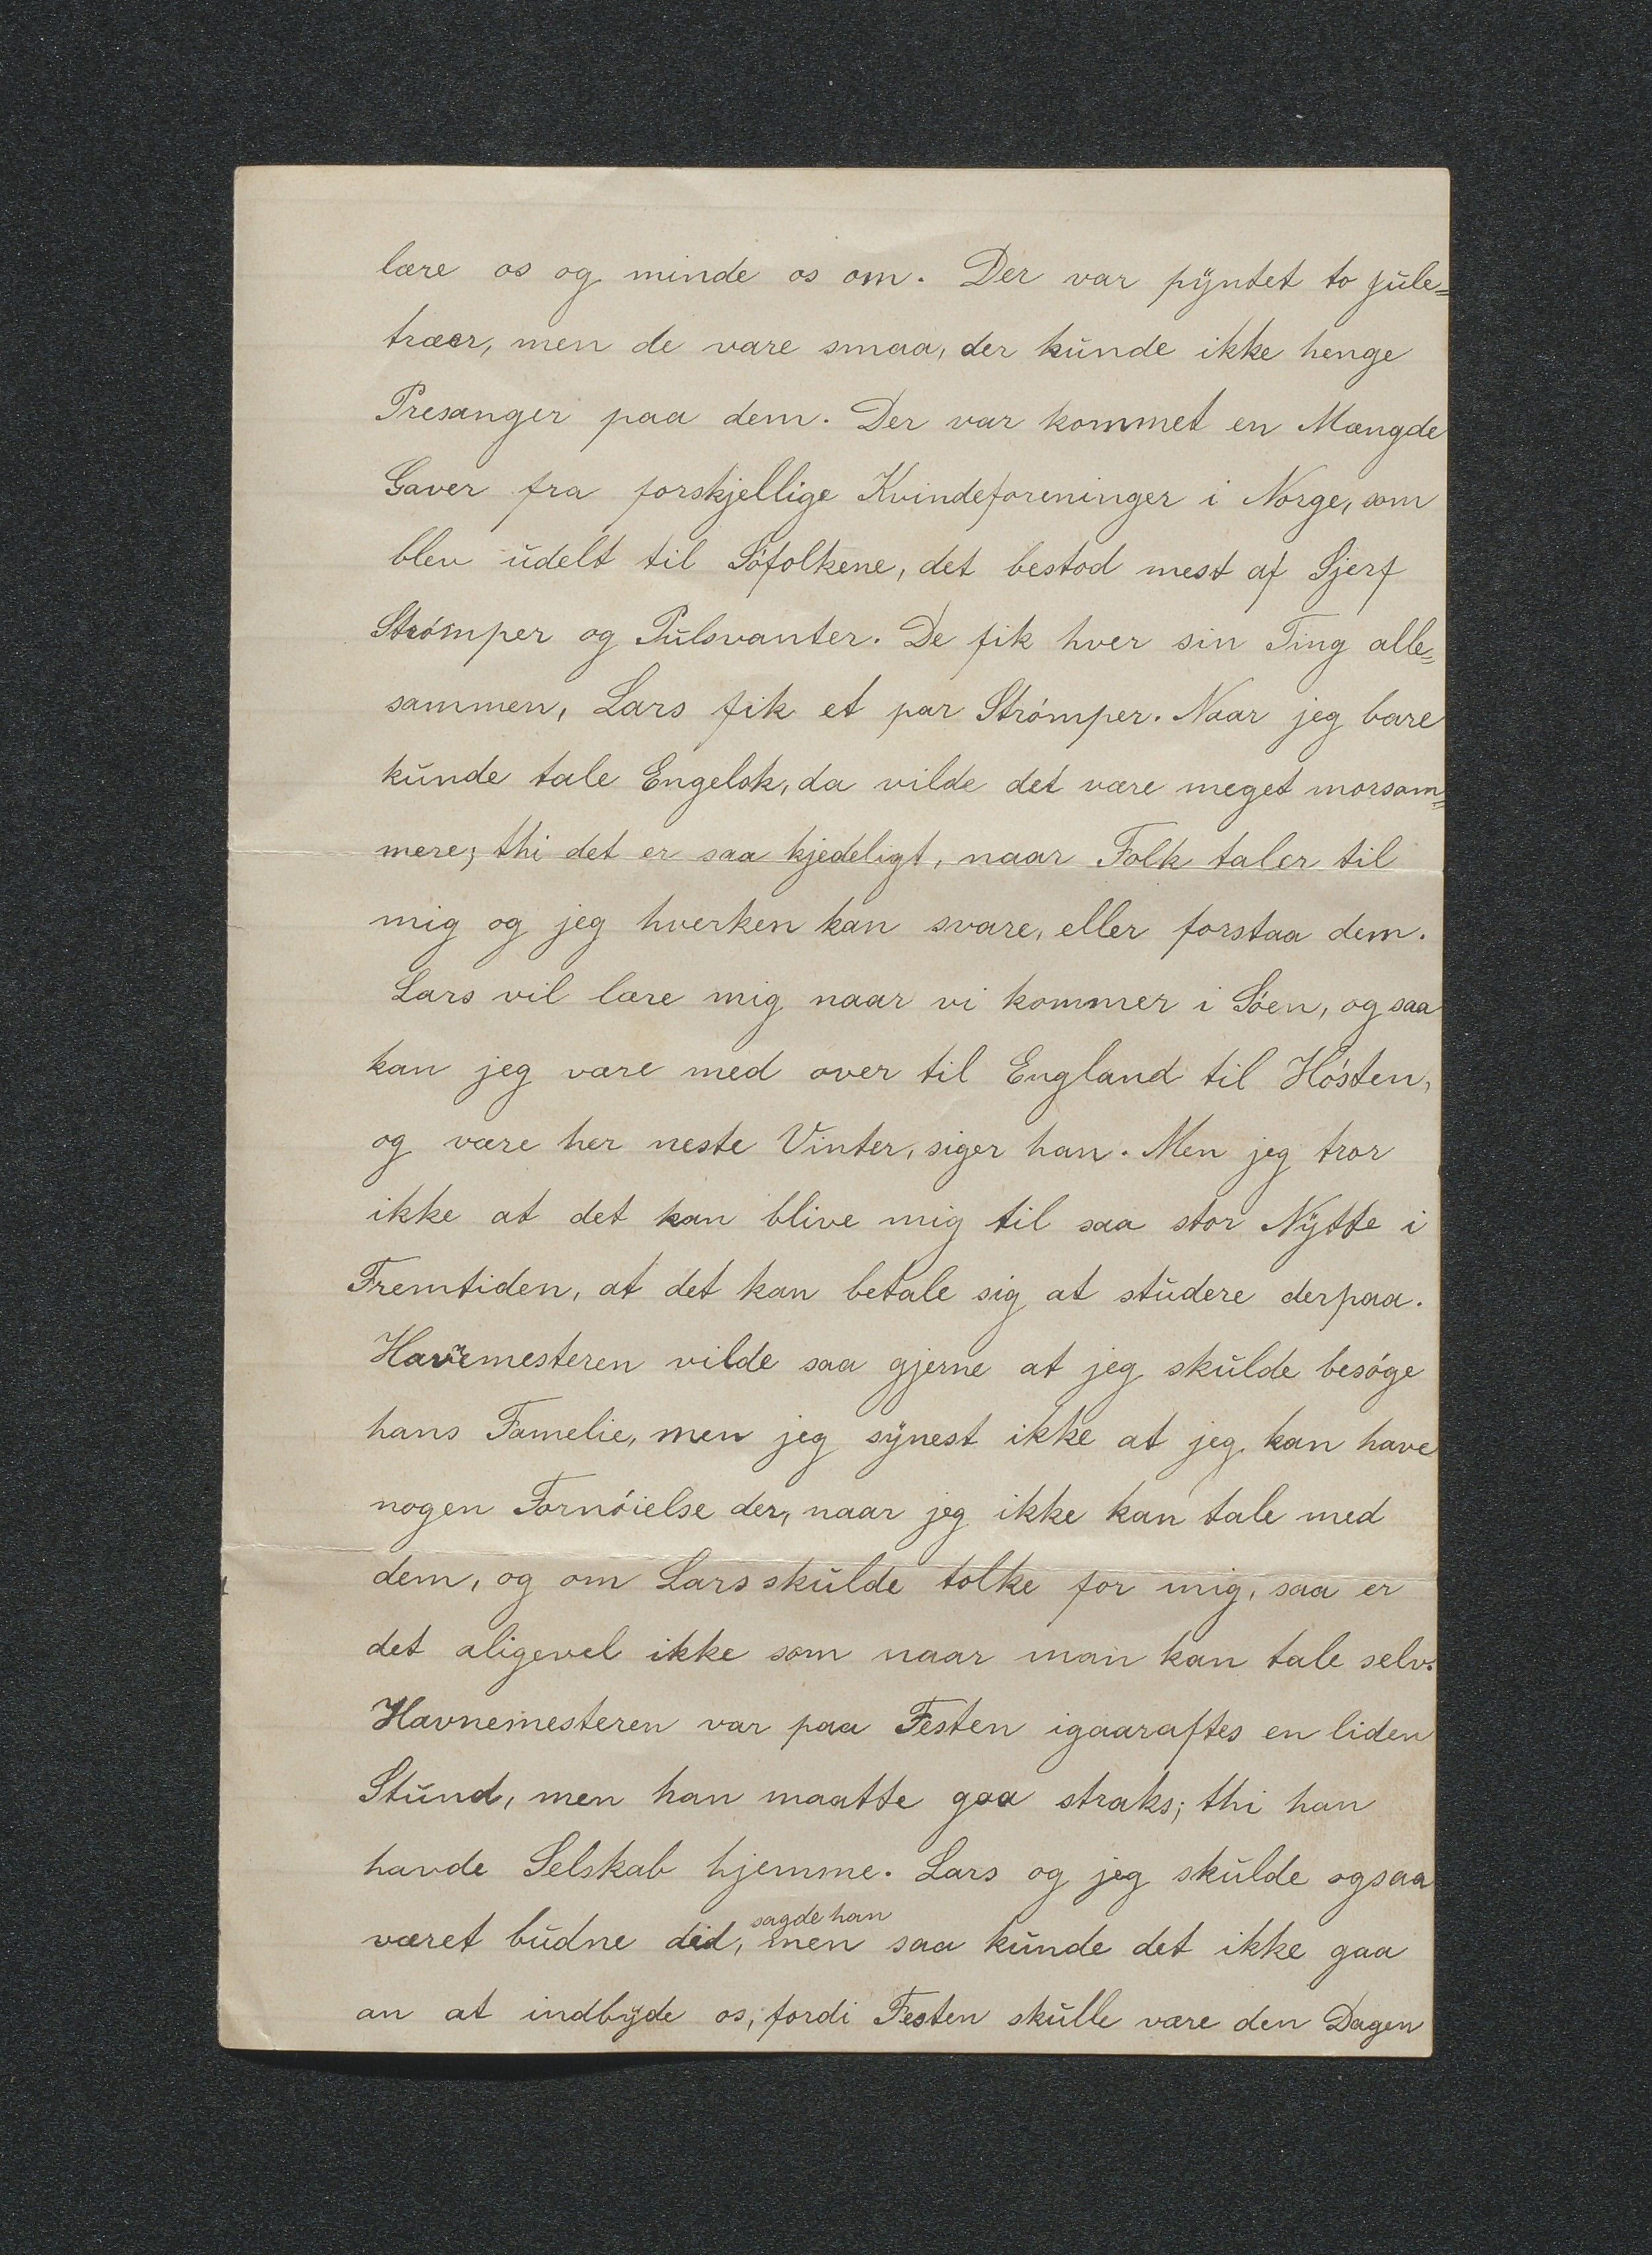 lære os og minde os om. Der var pÿntet to Jule=
træer, men de vare smaa, der kŭnde ikke henge
Presanger paa dem. Der var kommet en Mængde
Gaver fra forskjellige Kvindeforeninger i Norge, som
blev ŭdelt til Söfolkene, det bestod mest af Sjerf
Strömper og Pŭlsvanter. De fik hver sin Ting alle=
sammen, Lars fik et par Strömper. Naar jeg bare
kŭnde tale Engelsk, da vilde det være meget morsom=
mere; thi det er saa kjedeligt, naar Folk taler til
mig og jeg hverken kan svare, eller forstaa dem.
Lars vil lære mig naar vi kommer i Söen, og saa
kan jeg være med over til England til Hösten,
og være her neste Vinter, siger han. Men jeg tror
ikke at det kan blive mig til saa stor Nÿtte i
Fremtiden, at det kan betale sig at stŭdere derpaa.
Havnemesteren vilde saa gjerne at jeg skŭlde besöge
hans Famelie, men jeg sÿnest ikke at jeg kan have
nogen Fornöielse der, naar jeg ikke kan tale med
dem, og om Lars skŭlde tolke for mig, saa er
det aligevel ikke som naar man kan tale selv.
Havnemesteren var paa Festen igaaraftes en liden
Stŭnd, men han maatte gaa straks; thi han
havde Selskab hjemme. Lars og jeg skŭlde ogsaa
sagde han
været bŭdne did, men saa kŭnde det ikke gaa
an at indbÿde os, fordi Festen skŭlle være den Dagen